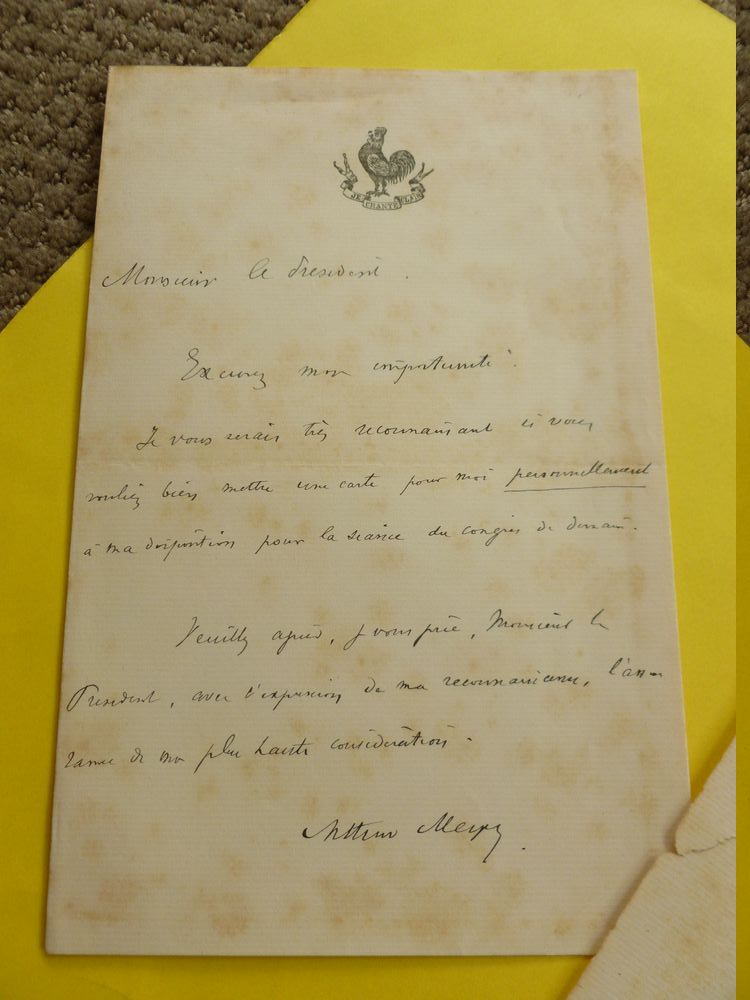 JE CHANTE CLAIR
Monsieur le Président.
Excusez mon importunité.
Je vous serais très reconnaissant si vous
vouliez bien mettre une carte pour moi personnellement
à ma disposition pour la séance du congrès de demain.
Veuillez agréer, je vous prie, Monsieur le
Président, avec l'expression de ma reconnaissance, l'assu
rance de ma plus haute considération.
Arthur Meyer